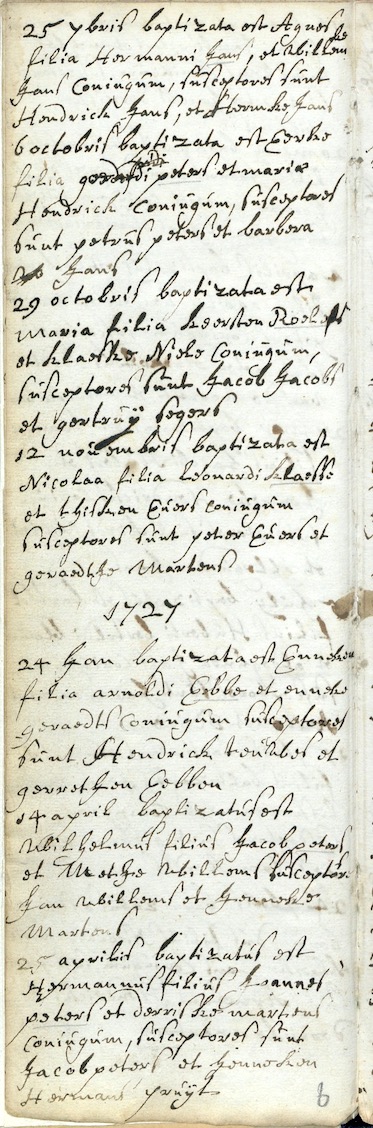 25 7bris baptizata est Agneske
filia Hermanni Jans, et Willem
Jans Coniugum, susceptores sunt
Hendrick Jans, et Hermke Jans
6 octobris baptizata est Gerke
filia peters et mariæ
Hendrick Coniugum, susceptores
sunt petrus peters et barbera
Jans
29 octobris baptizata est
Maria filia keersten Roelofs
et klaeske Niele Coniugum,
susceptores sunt Jacob Jacobs
et gertruÿ segers
12 nouembris baptizata est
Nicolaa filia leonardi klaesse
et thisken Euers coniugum
susceptores sunt peter Euers et
geraedtje Martens
1727
24 Jan baptizata est Enneken
filia arnoldi Ebbe et enneke
geraedts Coniugum susceptores
sunt Hendrick teubbes et
gerretken Ebben
14 april baptizatus est
Wilhelmus filius Jacob peters
et Metje Willems susceptor
Jan Willems et Jenneke
Martens
25 aprilis baptizatus est
Hermannus filius Joannes
peters et derriske martens
coniugum, susceptores sunt
Jacob peters et Jenneken
Hermans pruÿt
6